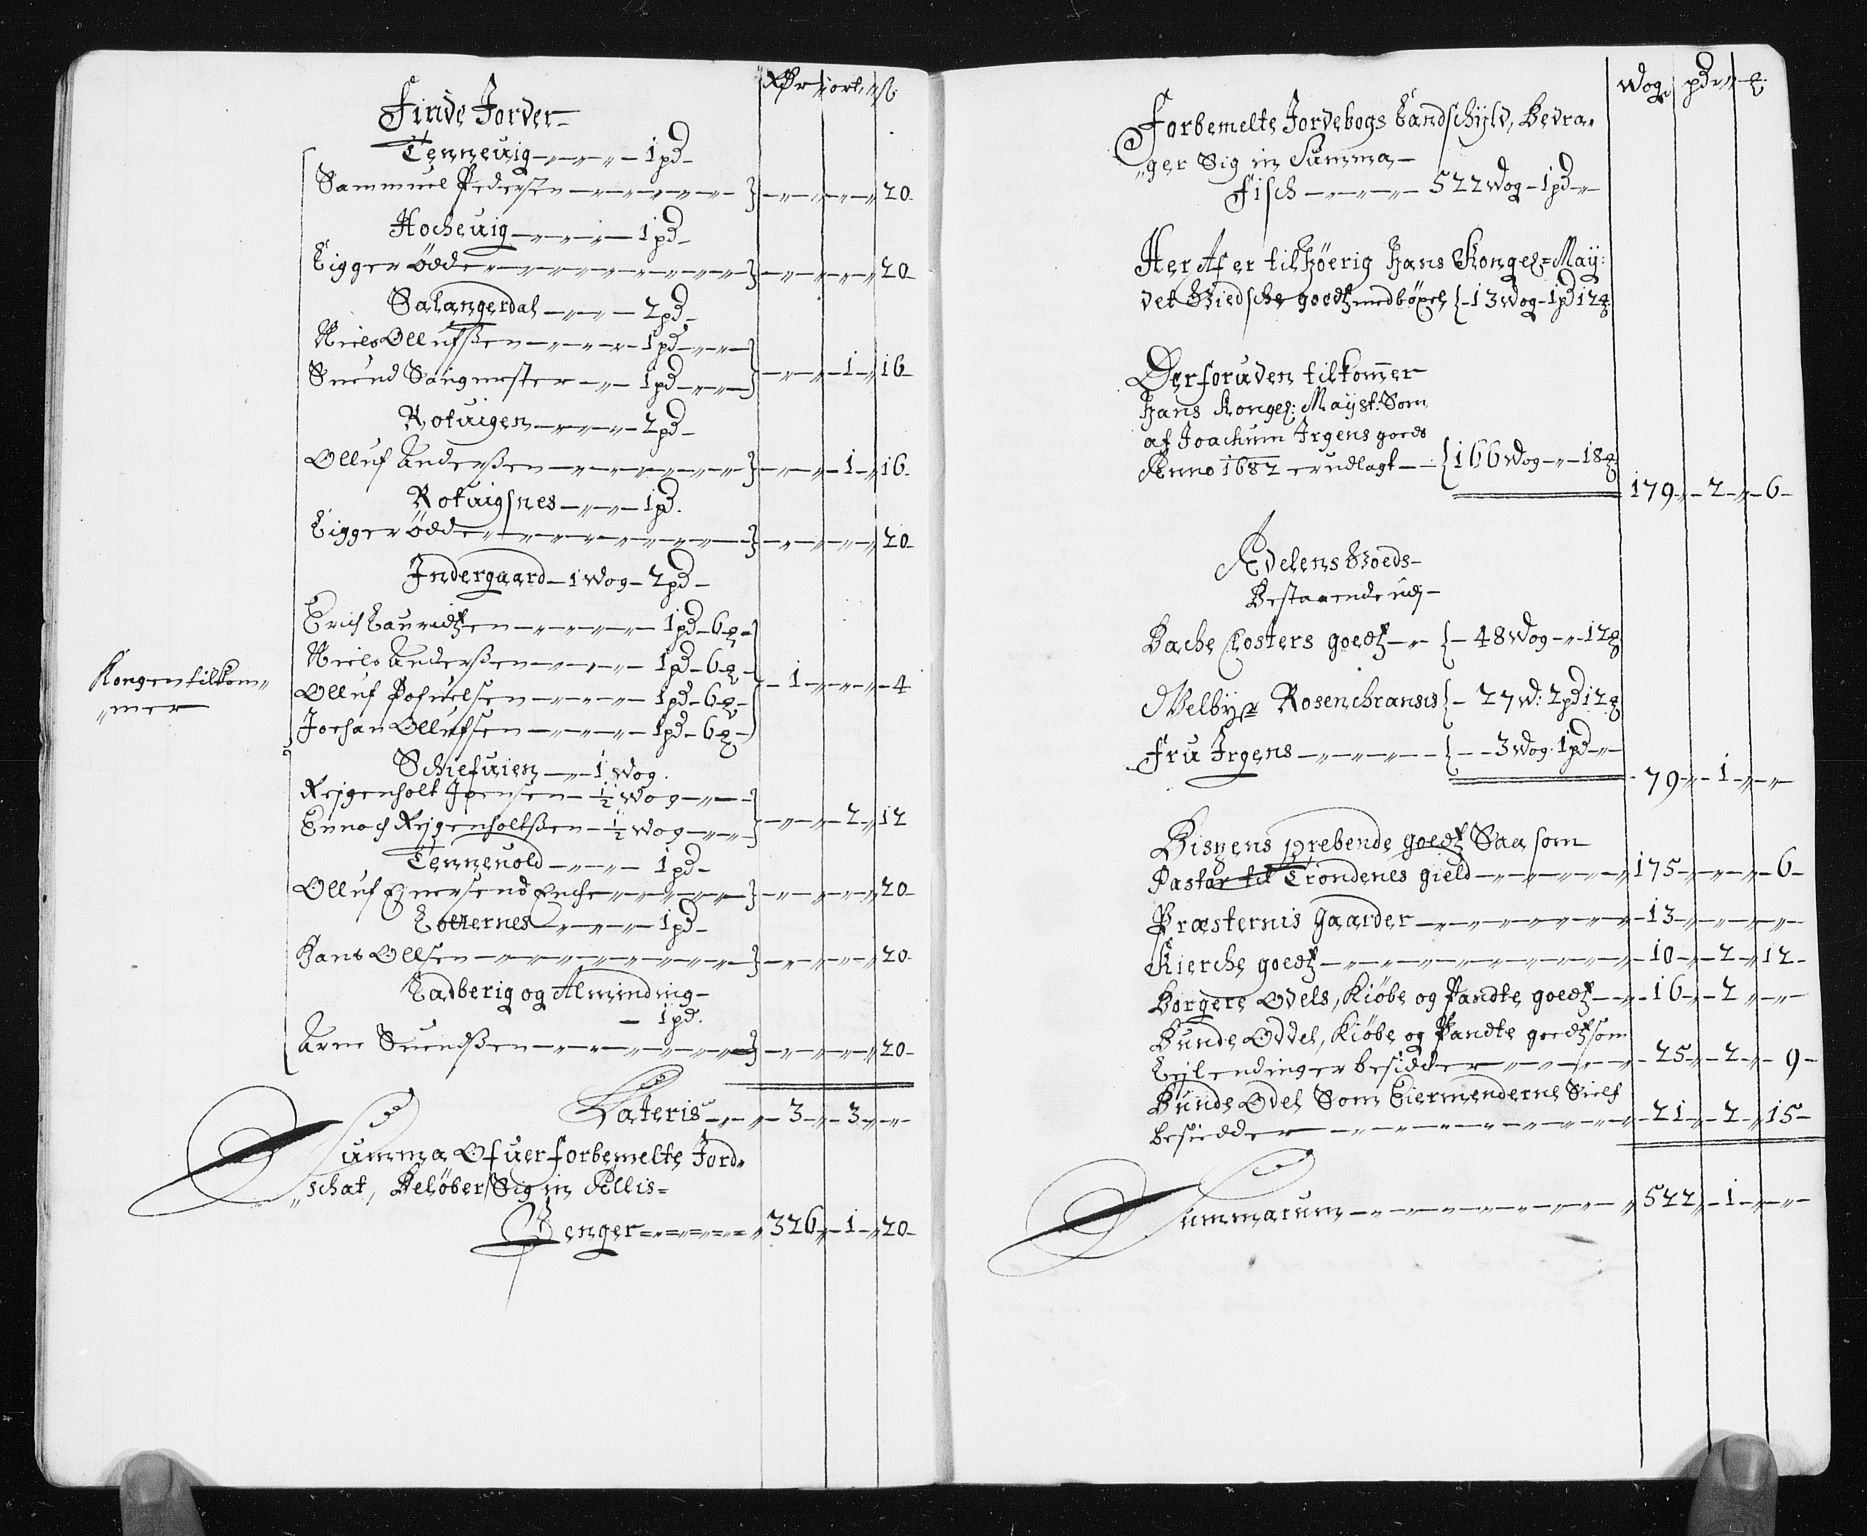 Rdr ort ß
Finde Jorder
Tenneuig 1 pd
Sammuel Pedersen 20
Hocheuig 1 pd
Ligger Öde 20
Salangerdal 2 pd
Niels Ollufßen 1 pd
Suend Sangmester 1 pd 1 16
Rotuigen 2 pd
Olluf Anderßen 1 16
Rotuigsnes 1 pd.
Ligger Öde 20
Indergaard 1 Wog 2 pd
Erich Lauridtzen 1 pd 6 
Niels Anderßen 1 pd 6 
Kongen tilkom„
„mer
Olluf Pofuelsen 1 pd 6 1 4
Jochan Ollufsen 1 pd 6
Schiefuien 1 Wog.
Rejgenholt Joensen ½ Wog
Ennoch Rejgenholtßen ½ Wog 2 12
Tenneuold 1 pd
Olluf Ejnersens Enche 20
1 pd
Hans Ollsen 20
Ladberig og Alminding
1 pd.
Arne Suendßen 20
Lateris 3 3
Summa Ofuer forbemelte Jord„
„schat, Belöber Sig in Allis
Penger 326 1 20
Wog pd
Forbemelte Jordebogs Landschyld, Bedra„
„ger Sig in Summa
Fisch 522 Wog 1 pd
Her Af er tilhöerig Hans Kongel: May:
det Giedsche goedtz med böxel 13 Wog 1 pd 12
Derforuden tilkommer
Hans Kongel: Mayst: Som
af Joachum Irgens goeds
Anno 1682 er udlagt 166 Wog 18
179 2 6
Adelens Goeds
Bestaaende udj
Bache Closters goedtz 48 Wog 12
Welbyr Rosenchransis 27 W: 2 pd 12
Fru Irgens 3 Wog. 1 pd
79 1
Bispens prebende goedtz Saa som
Pastor til Trondenes gield 175 6
Præsternis gaarder 13
Kierche goedtz 10 2 12
Borgere Odels, Kiöbe og Pandte goedtz 16 2
Bunde Oddel, Kiöbe og Pandte goedtz som
Lejlendinger besidder 25 2 9
Bunde Odel Som Eiermenderne Sielf
besidder 21 2 15
Summarum 522 1